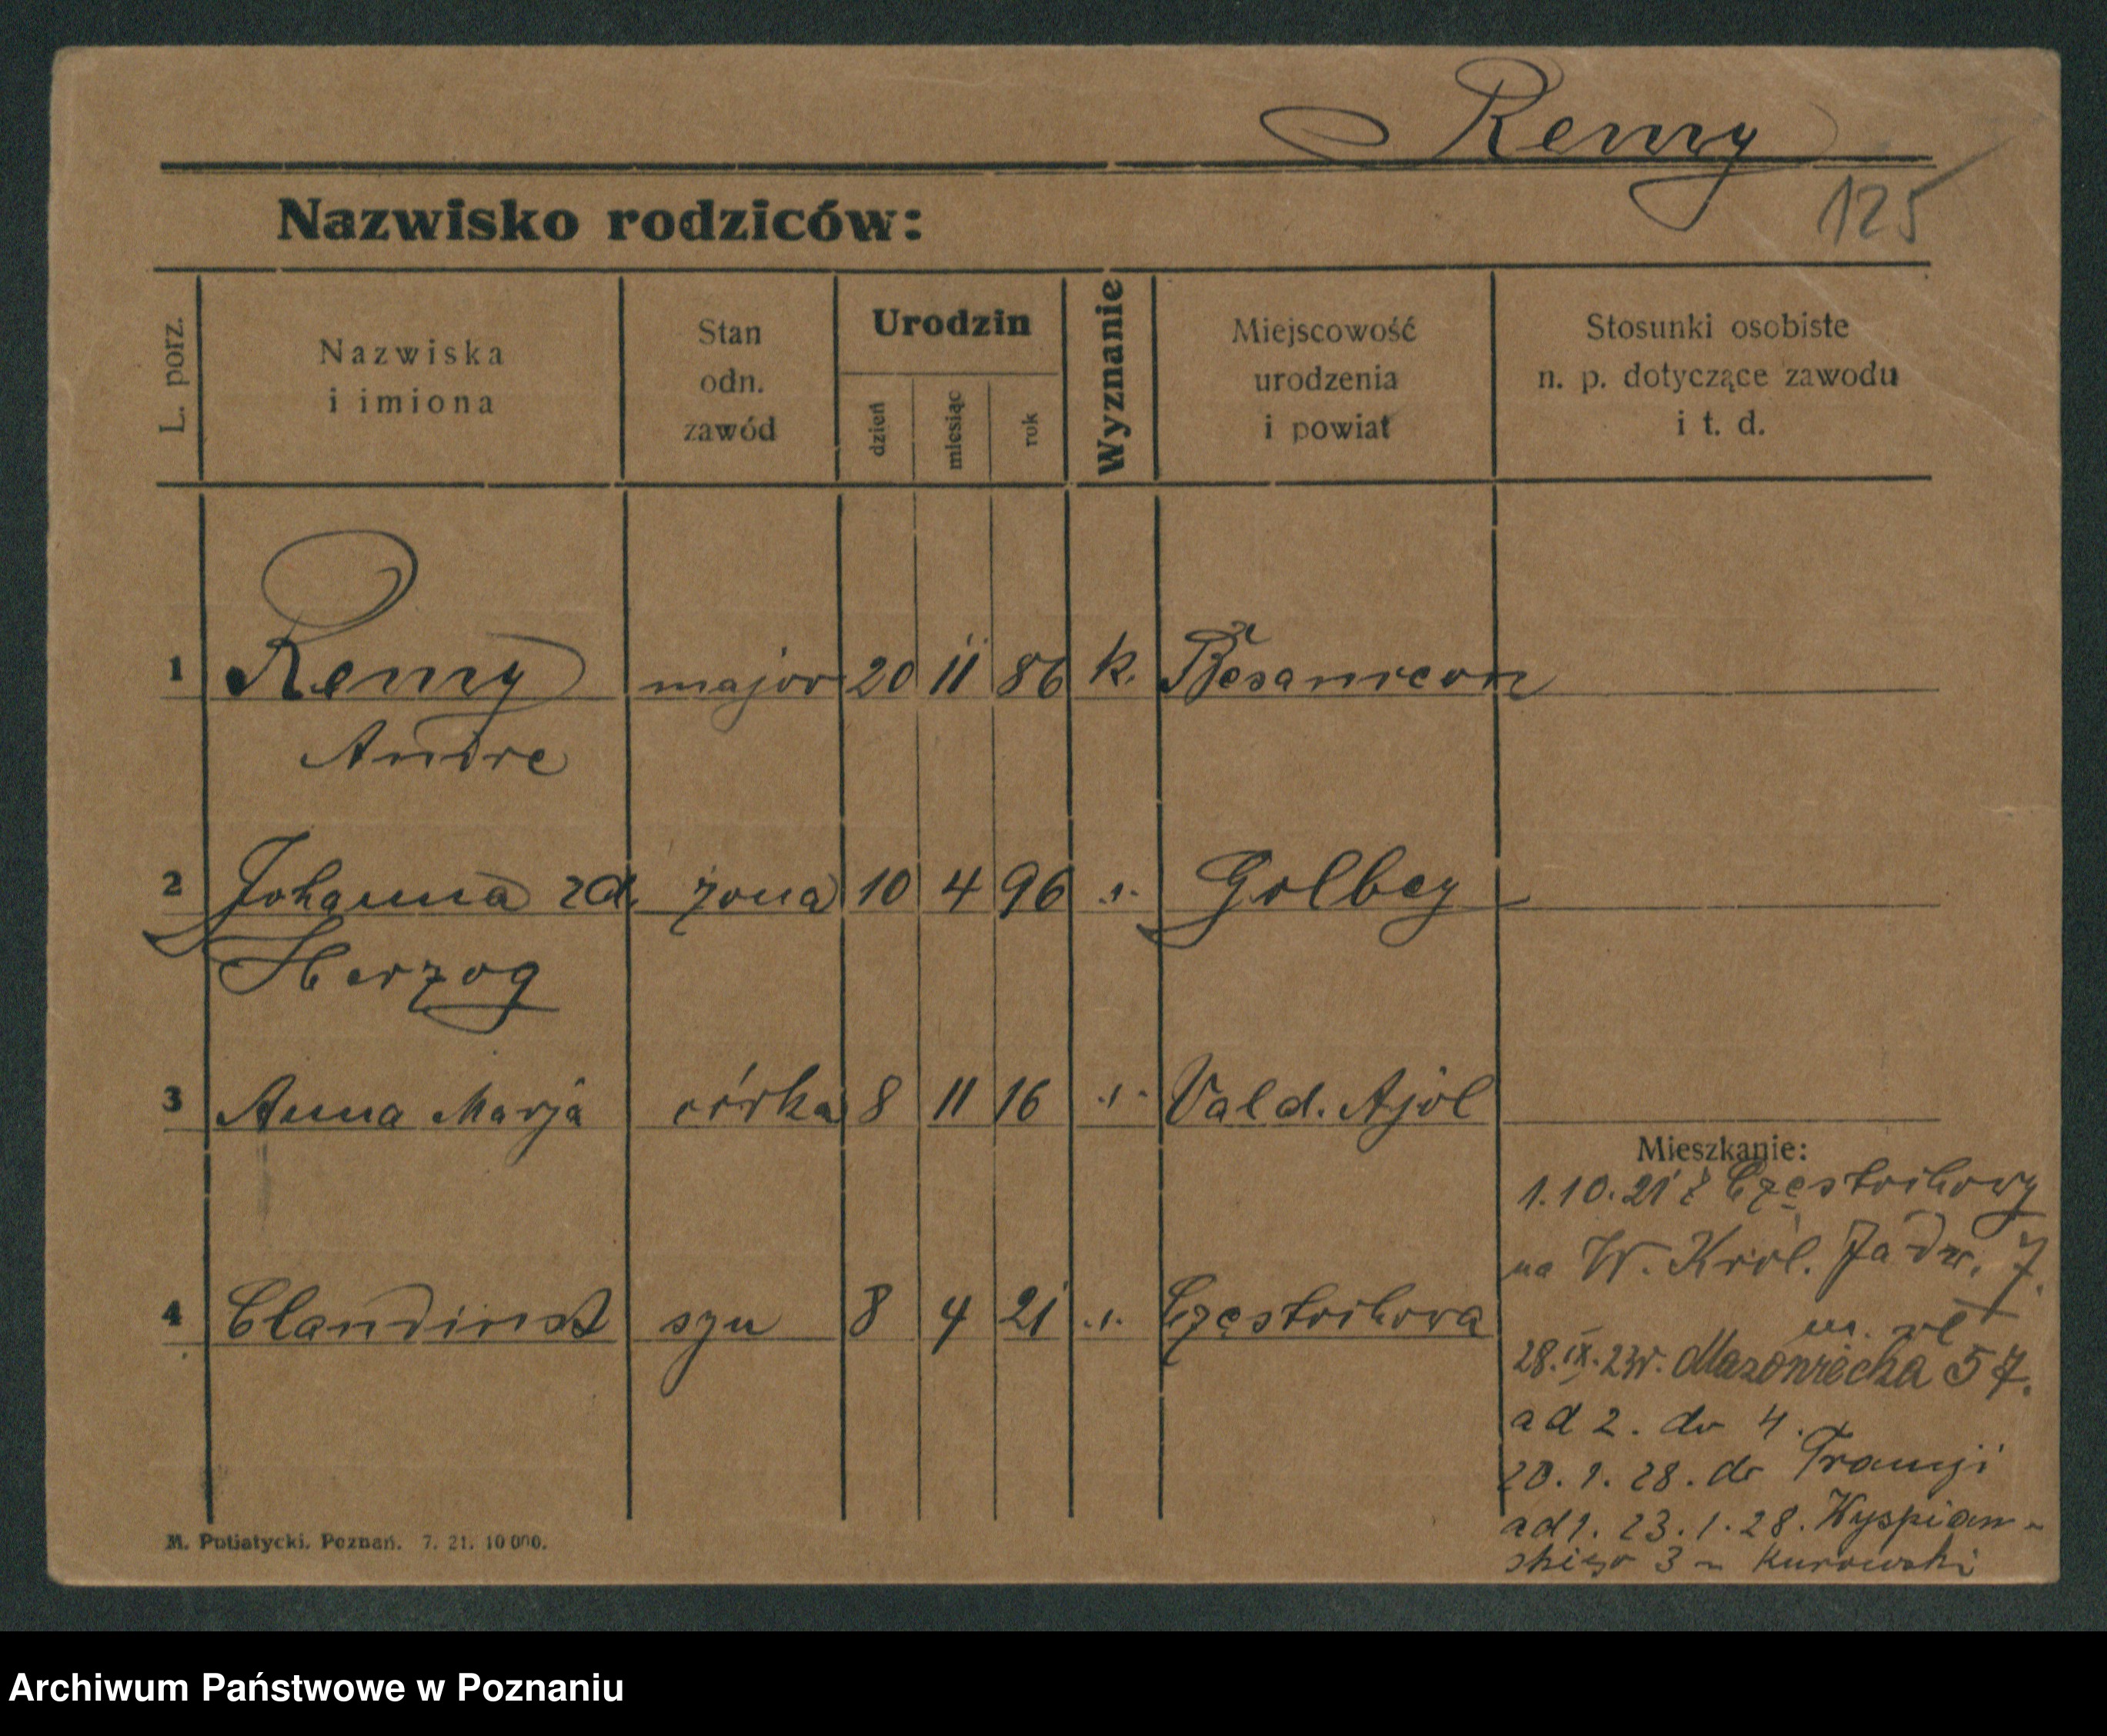 Remy
125
Nazwisko rodziców:
L. porz.
Nazwiska
i imiona
Stan
odn.
zawód
Urodzin
dzień
miesiąc
rok
Wyznanie
Miejscowość
urodzenia
i powiat
Stosunki osobiste
n. p. dotyczące zawodu
i t. d.
1 Remy major 20 11 86 k. Besancon
Andre
2 Johanna zd. żona 10 4 96 .1. Golbey
Herzog
3 Anna Marja córka 8 11 16 .1. Val d. Ajol
Mieszkanie:
1.10.21 z Częstochowy
na W. Król. Jadw. 7.
4 syn 8 4 21 .1. Częstochowa
28.IX.23r. Mazowiecka 57.
ad 2. do 4.
20.1.28. do Francji
ad 1. 23.1.28. Wyspiań-
skiego 3 Kurowski
M. Putiatycki. Poznań. 7. 21. 10 000.
Archiwum Państwowe w Poznaniu